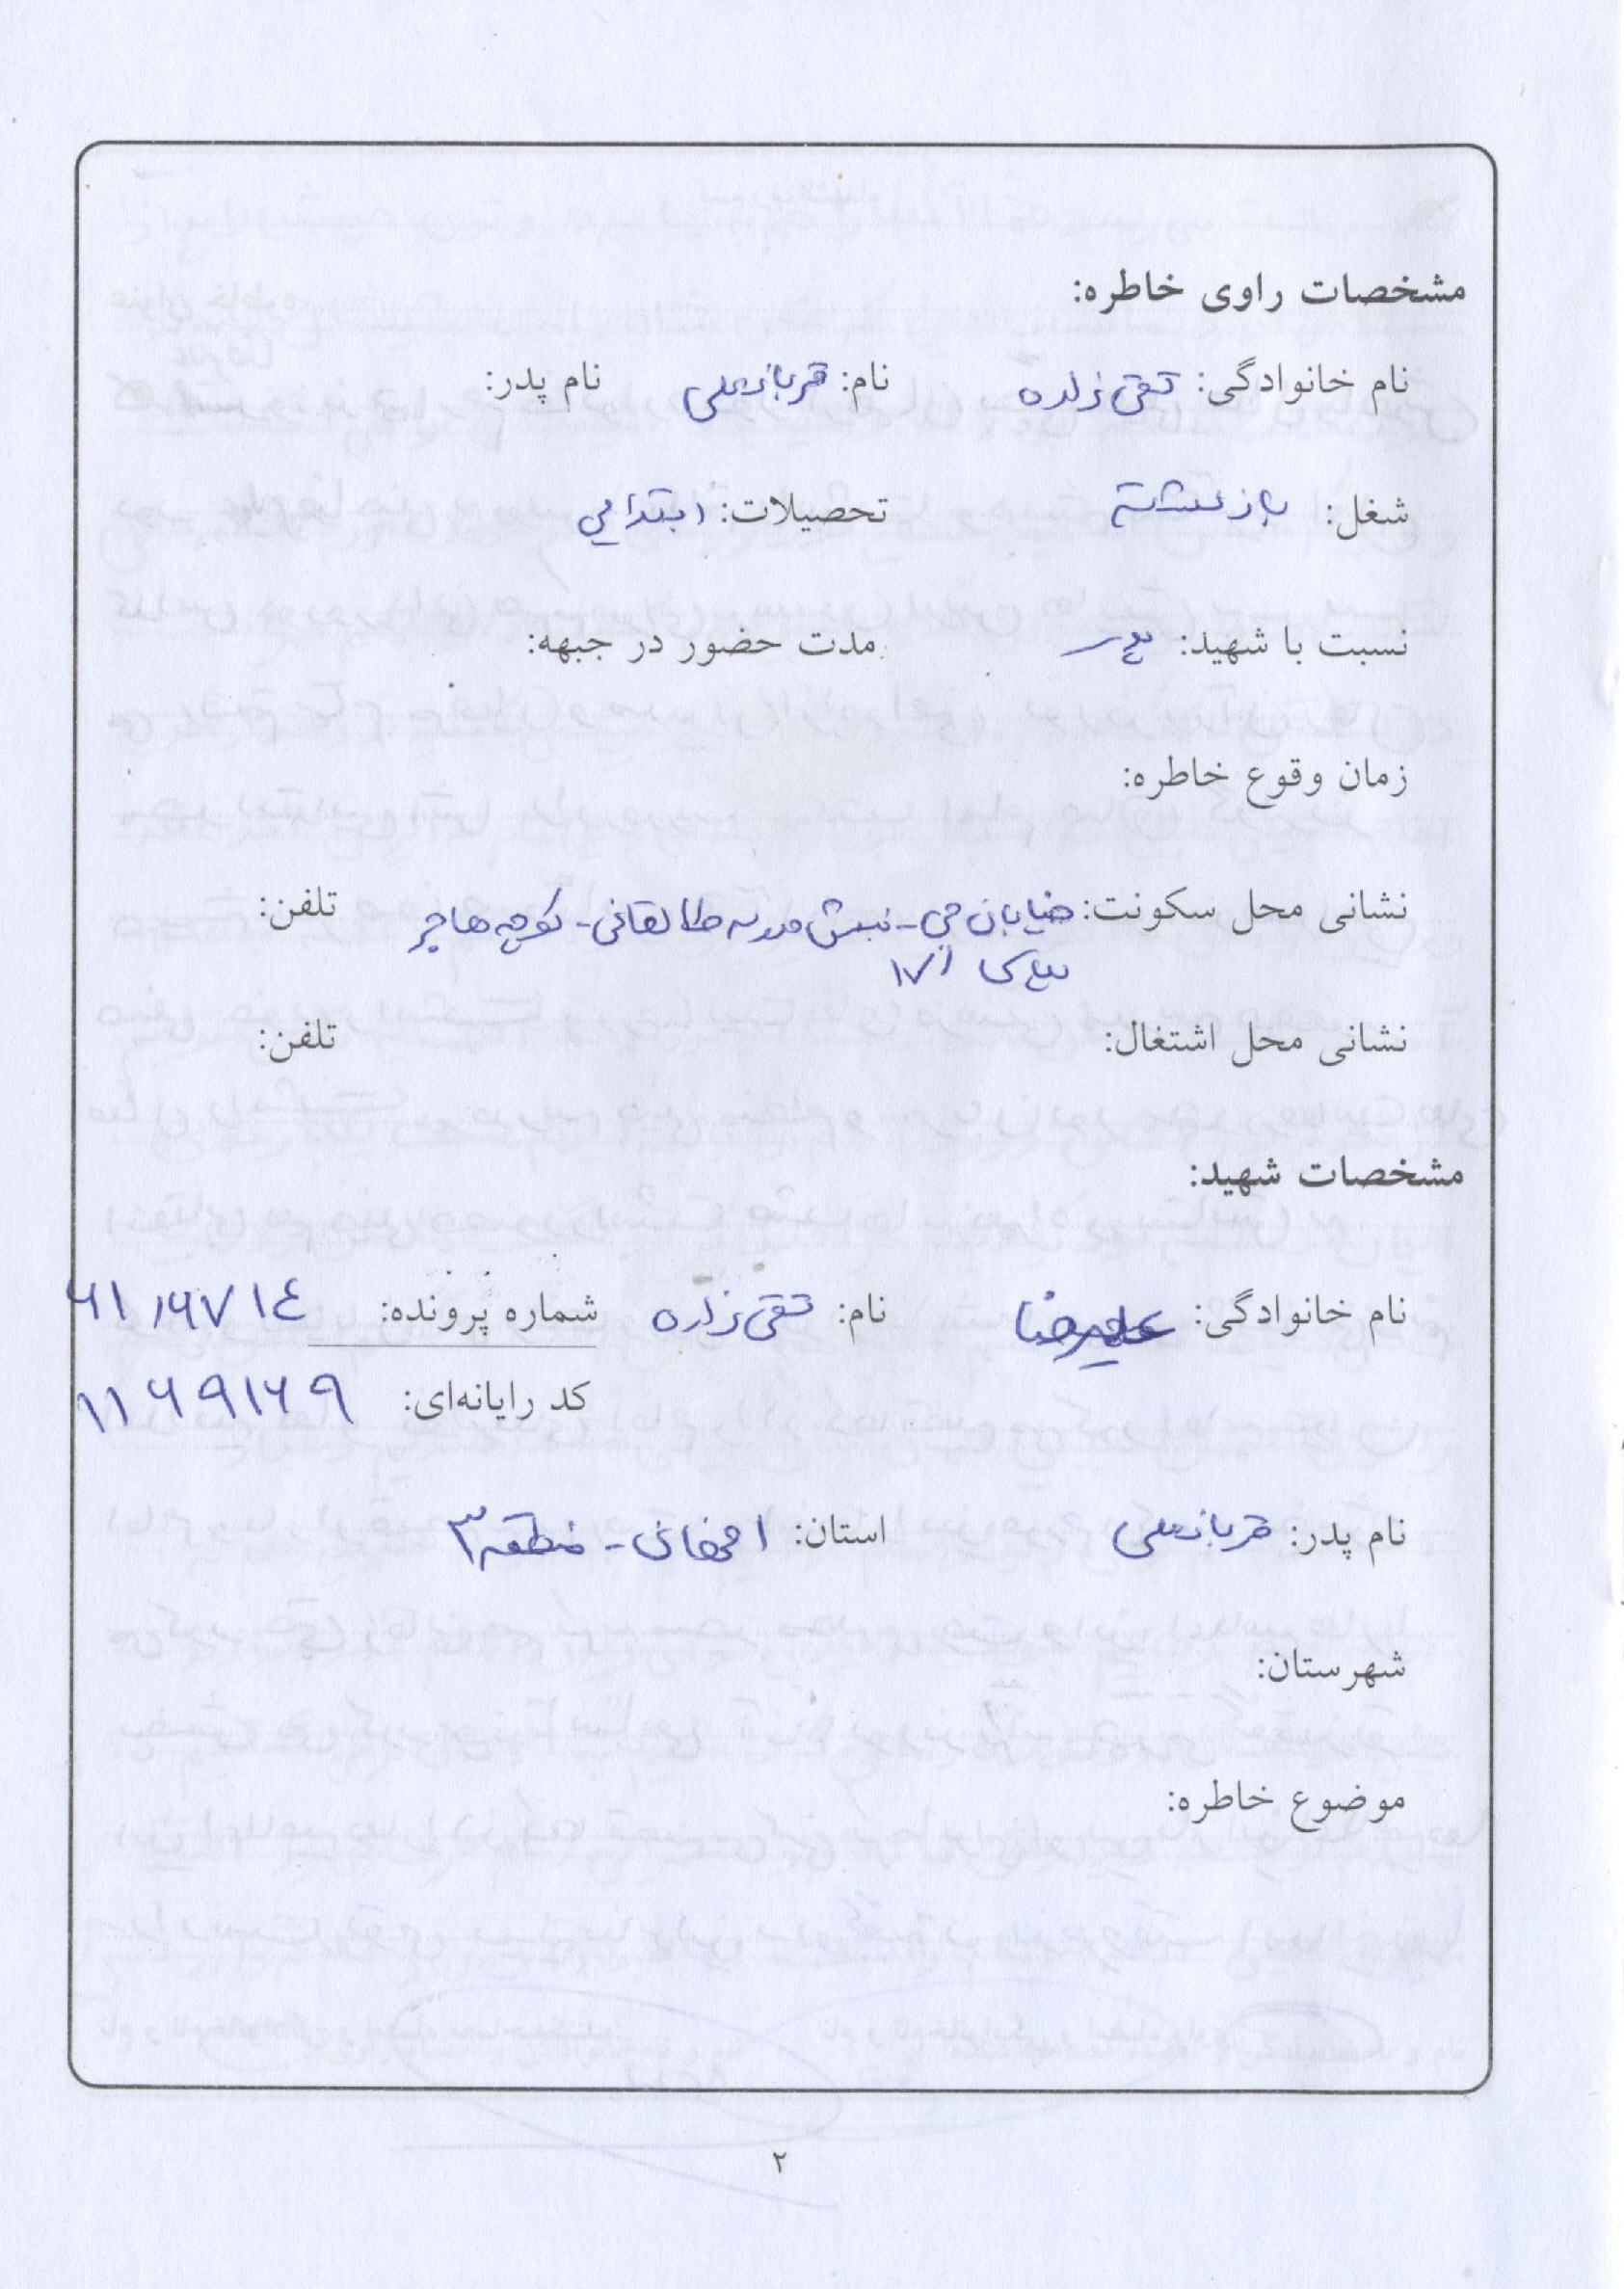 مشخصات راوی خاطره:
نام خانوادگی: تقی زاده نام: قربانعلی نام پدر:
شغل: بازنشسته تحصیلات: ابتدایی
نسبت با شهید: پدر مدت حضور در جبهه:
زمان وقوع خاطره:
نشانی محل سکونت: خیابان جی - نبش مدرسه طالقانی - کوچه هاجر تلفن:
پلاک ۱۷۱
نشانی محل اشتغال: تلفن:
مشخصات شهید:
نام خانوادگی: علیرضا نام: تقی زاده شماره پرونده:
کد رایانه‌ای: ۱۱۶۹۱۶۹
نام پدر: قربانعلی استان: اصفهان - منطقه ۳
شهرستان:
موضوع خاطره:
۲